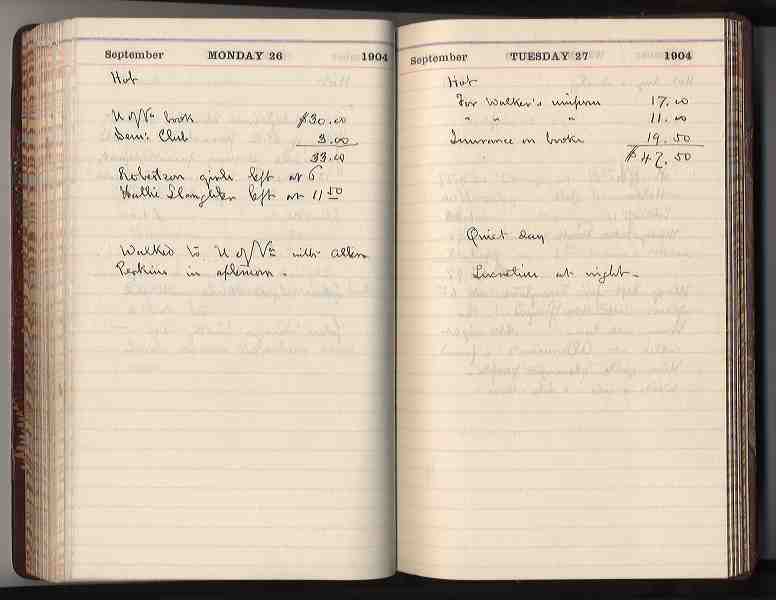 September MONDAY 26 1904
Hot
U of Va book $30.00
Dem. Club 3.00
33.00
Robertson girls left at 6
Hallie Slaughter left at 11 50
Walked to U of Va with
Perkins in afternoon.
September TUESDAY 27 1904
Hot
For Walker's uniform 17.00
" " " 11.00
Insurance on books 19.50
$47.50
Quiet day
at night.